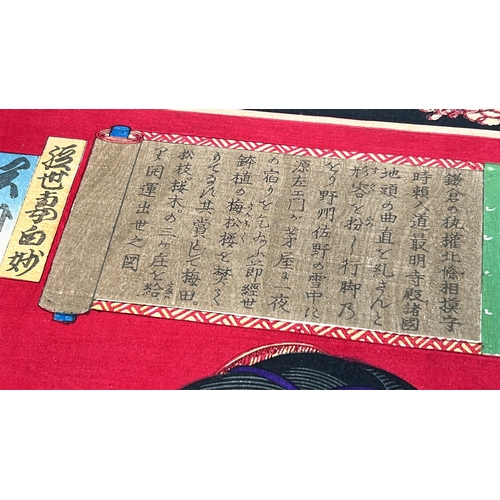 鎌倉の執権北條相摸守
時頼入道最明寺殿諸國
地頭の曲直を糺さんと
形容を扮し行脚乃
をり野州佐野の雪中に
源左エ門が茅屋に一夜
の宿りをこふ
即經世
鉢植の梅松桜を焚く
其賞として梅田
松枝桜木の三ヶ庄を給
開運出世之図
近世
白妙